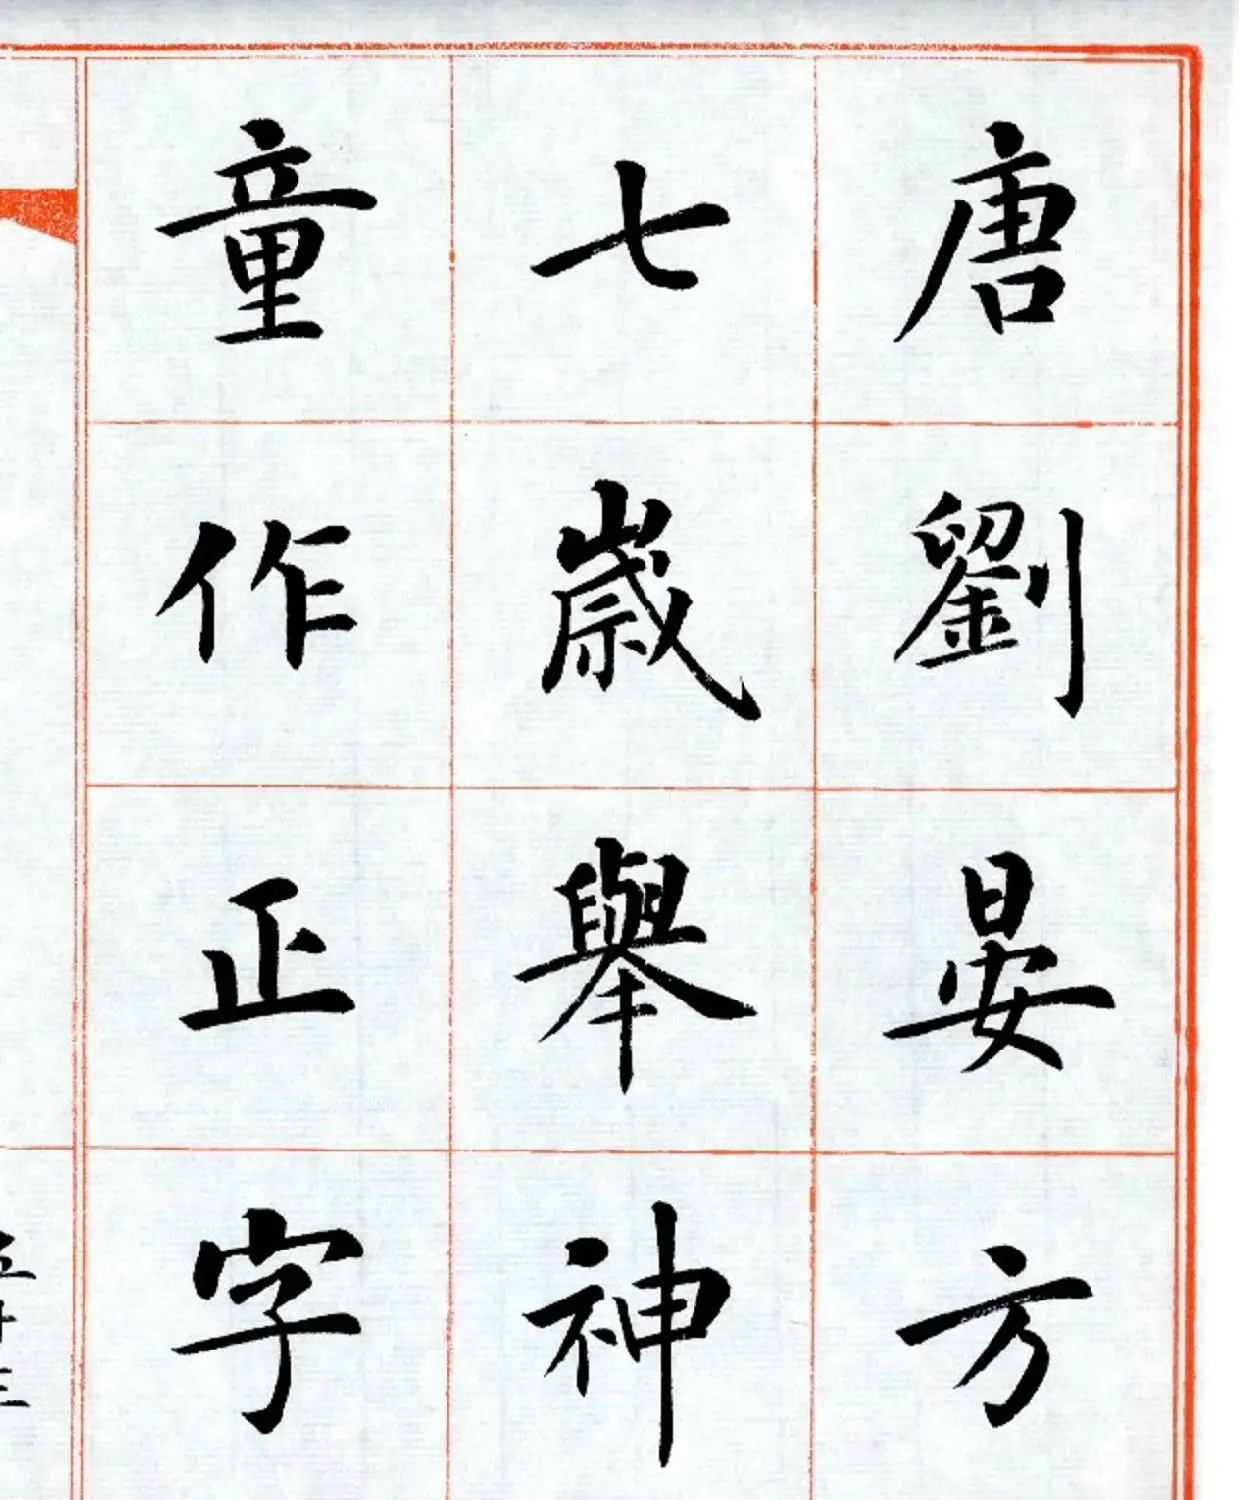 唐劉晏方
七歲舉神
童作正字